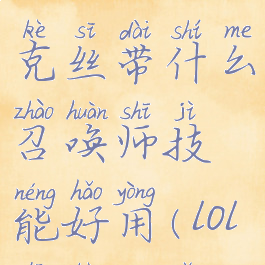 kè sī dài shí me
克丝带什么
zhào huàn shī jì
召唤师技
néng hǎo yòng
能好用(lol